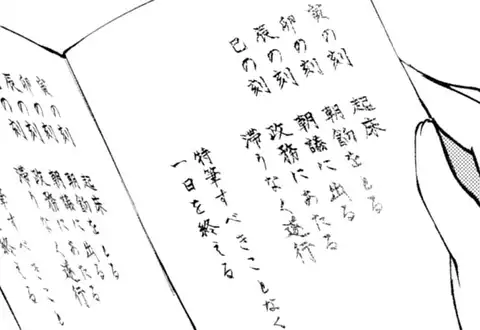 寅の刻 起床
卯の刻 朝餉をとる
辰の刻 朝議に出る
巳の刻 政務にあたる
滞りなく遂行
特筆すべきことなく
一日を終える
寅の刻 起床
卯の刻 朝餉をとる
辰の刻 朝議に出る
の刻 政務にあたる
滞りなく遂行
特筆すべきこと
終える